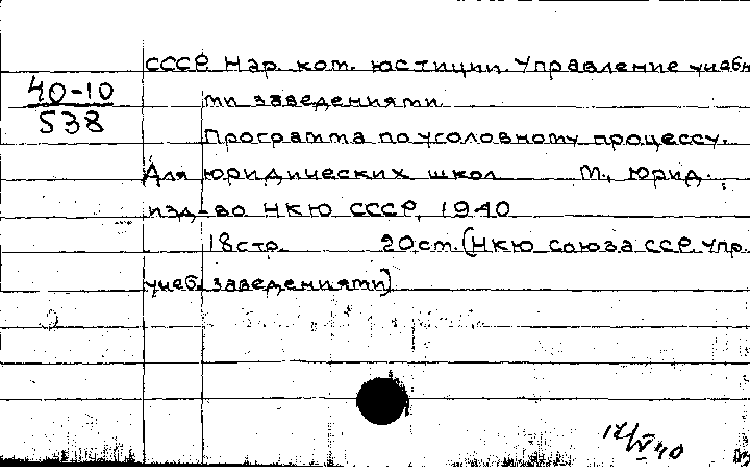 СССР Нар. ком. юстиции. Управление учебн
40-10
ми заведениями
538
Программа по уголовному процессу.
Для юридических школ М., Юрид.
изд-во НКЮ СССР, 1940
18 стр. 20 cm. (НКЮ союза ССР. Упр.
учеб. заведениями)